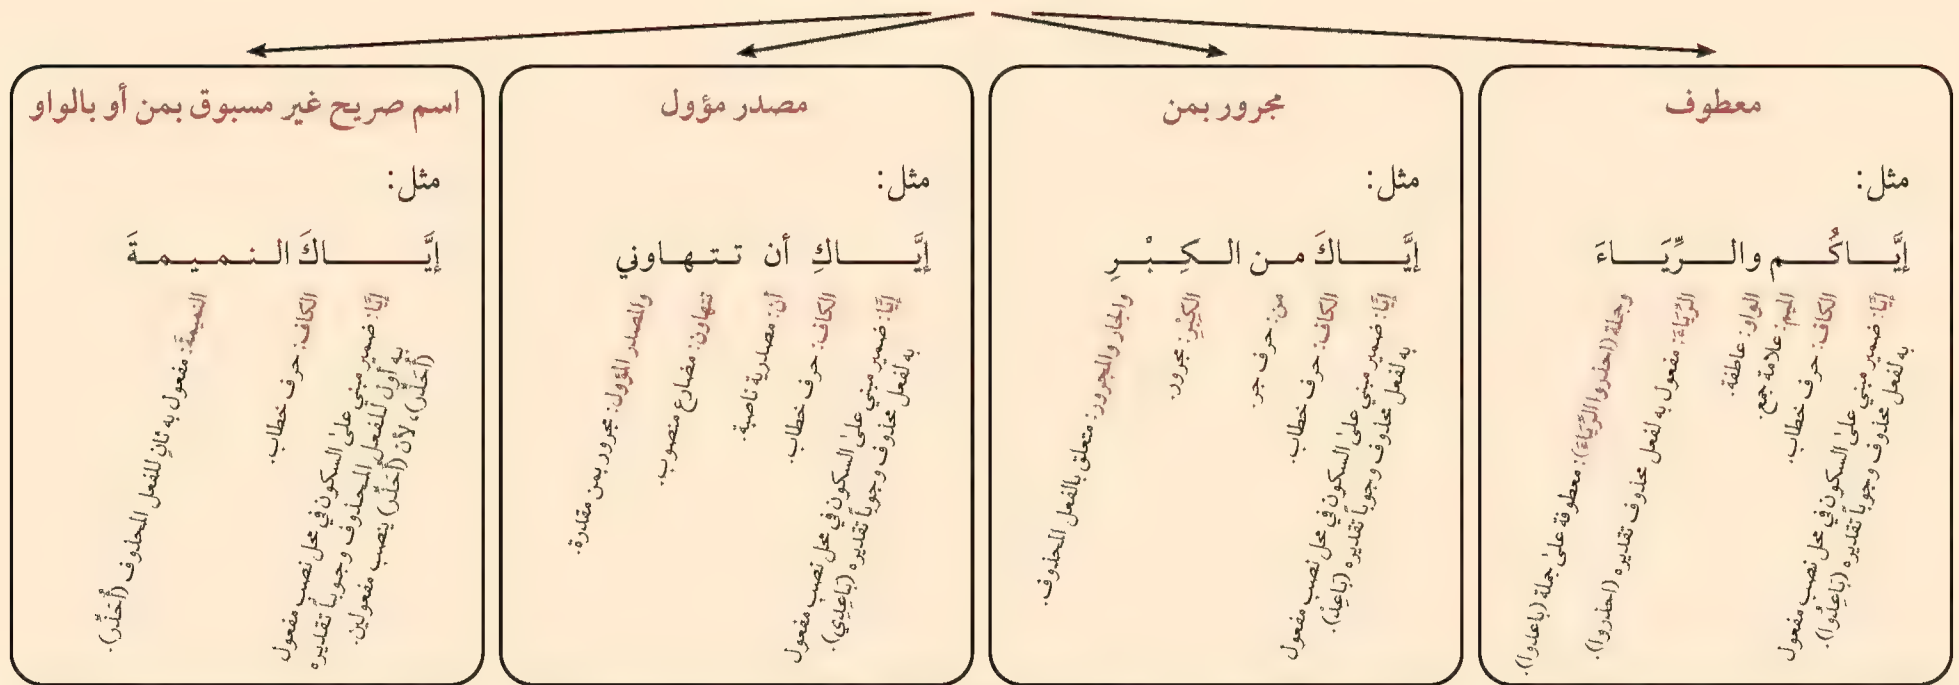 معطوف
مثل:
إيَّـــاكُـــم والـــرِّيَـــاءَ
إيَّا: ضمير مبني على السكون في محل نصب مفعول
به لفعل محذوف وجوباً تقديره (بَاعِدُوا).
الكاف: حرف خطاب.
الميم: علامة جمع.
الواو: عاطفة.
الرِّيَاءَ: مفعول به لفعل محذوف تقديره (احذروا).
وجملة (احذروا الرِّيَاءَ): معطوفة على جملة (باعدوا).
مجرور بمن
مثل:
إيَّـــاكَ مـن الـــكِـــبْـــرِ
إيَّا: ضمير مبني على السكون في محل نصب مفعول
به لفعل محذوف وجوباً تقديره (بَاعِدْ).
الكاف: حرف خطاب.
من: حرف جر.
الكِبْرِ: مجرور.
والجار والمجرور: متعلق بالفعل المحذوف.
مصدر مؤول
مثل:
إيَّـــاكِ أن تـتـهـاوني
إيَّا: ضمير مبني على السكون في محل نصب مفعول
به لفعل محذوف وجوباً تقديره (بَاعِدِي).
الكاف: حرف خطاب.
أن: مصدرية ناصبة.
تتهاون: مضارع منصوب.
والمصدر المؤول: مجرور بمن مقدرة.
اسم صريح غير مسبوق بمن أو بالواو
مثل:
إيَّـــاكَ الـنـمـيـمـةَ
إيَّا: ضمير مبني على السكون في محل نصب مفعول
به أول للفعل المحذوف وجوباً تقديره
(أُحَذِّر)، لأن (أُحَذِّر) ينصب مفعولين.
الكاف: حرف خطاب.
النميمةَ: مفعول به ثانٍ للفعل المحذوف (أُحَذِّر).